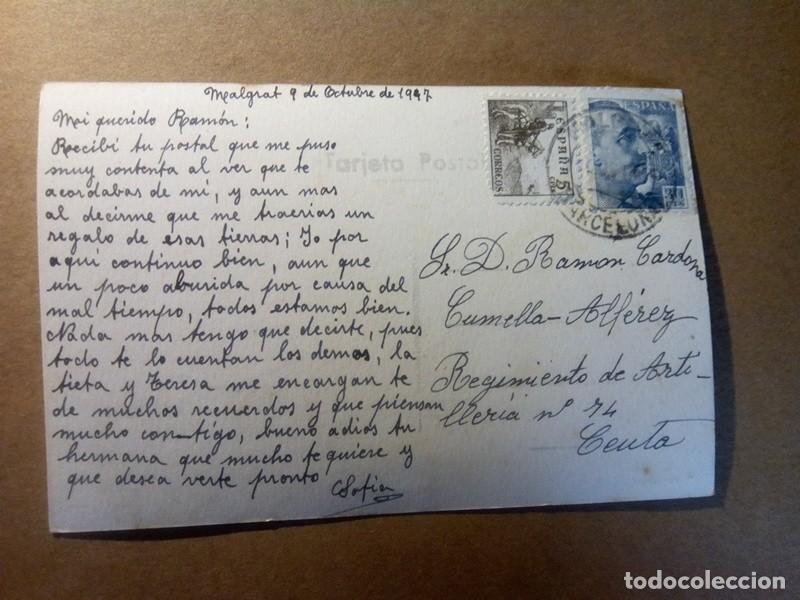 Malgrat 9 de Octubre de 1947
Mi querido Ramón:
Recibí tu postal que me puso
muy contenta al ver que te
acordabas de mí, y aun mas
al decirme que me traerías un
regalo de esas tierras; Yo por
aquí continuo bien, aun que
un poco aburida por causa del
mal tiempo, todos estamos bien.
Nada mas tengo que decirte, pues
todo te lo cuentan los demas, la
tieta y Teresa me encargan te
de muchos recuerdos y que piensan
mucho con-tigo, bueno adios tu
hermana que mucho te quiere y
que desea verte pronto
Sofia
Tarjeta Postal
ESPAÑA
CORREOS
5
CTS
ESPAÑA
BARCELONA
Sr. D. Ramon Cardona
Cumella-Alférez
Regimiento de Arti-
llería nº 74
Ceuta
todocoleccion
todocoleccion.net